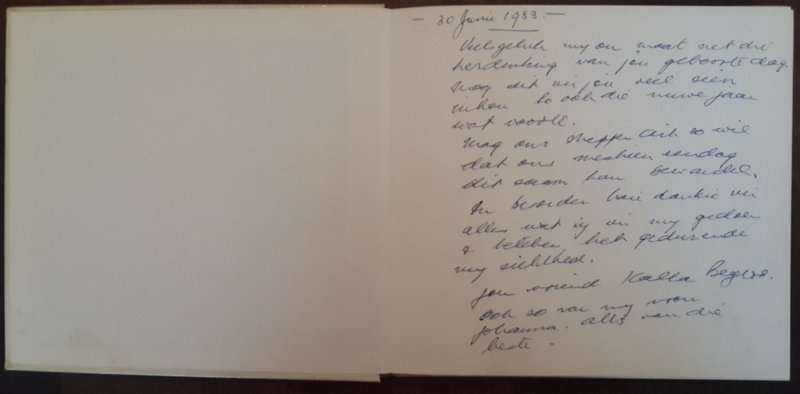 — 30 Junie 1983 —
Veels geluk my ou maat met die
herdenking van jou geboorte dag.
Mag dit vir jou veel seën
inhou so ook die nuwe jaar
wat voorlê.
Mag ons Skepper dit so wil
dat ons miskien eendag
dit saam kan bewandel.
baie dankie vir
alles wat jy vir my gedoen
& beteken het gedurende
my siekbed.
Jou vriend Kalla
ook so van my vrou
Johanna. Alles van die
beste.